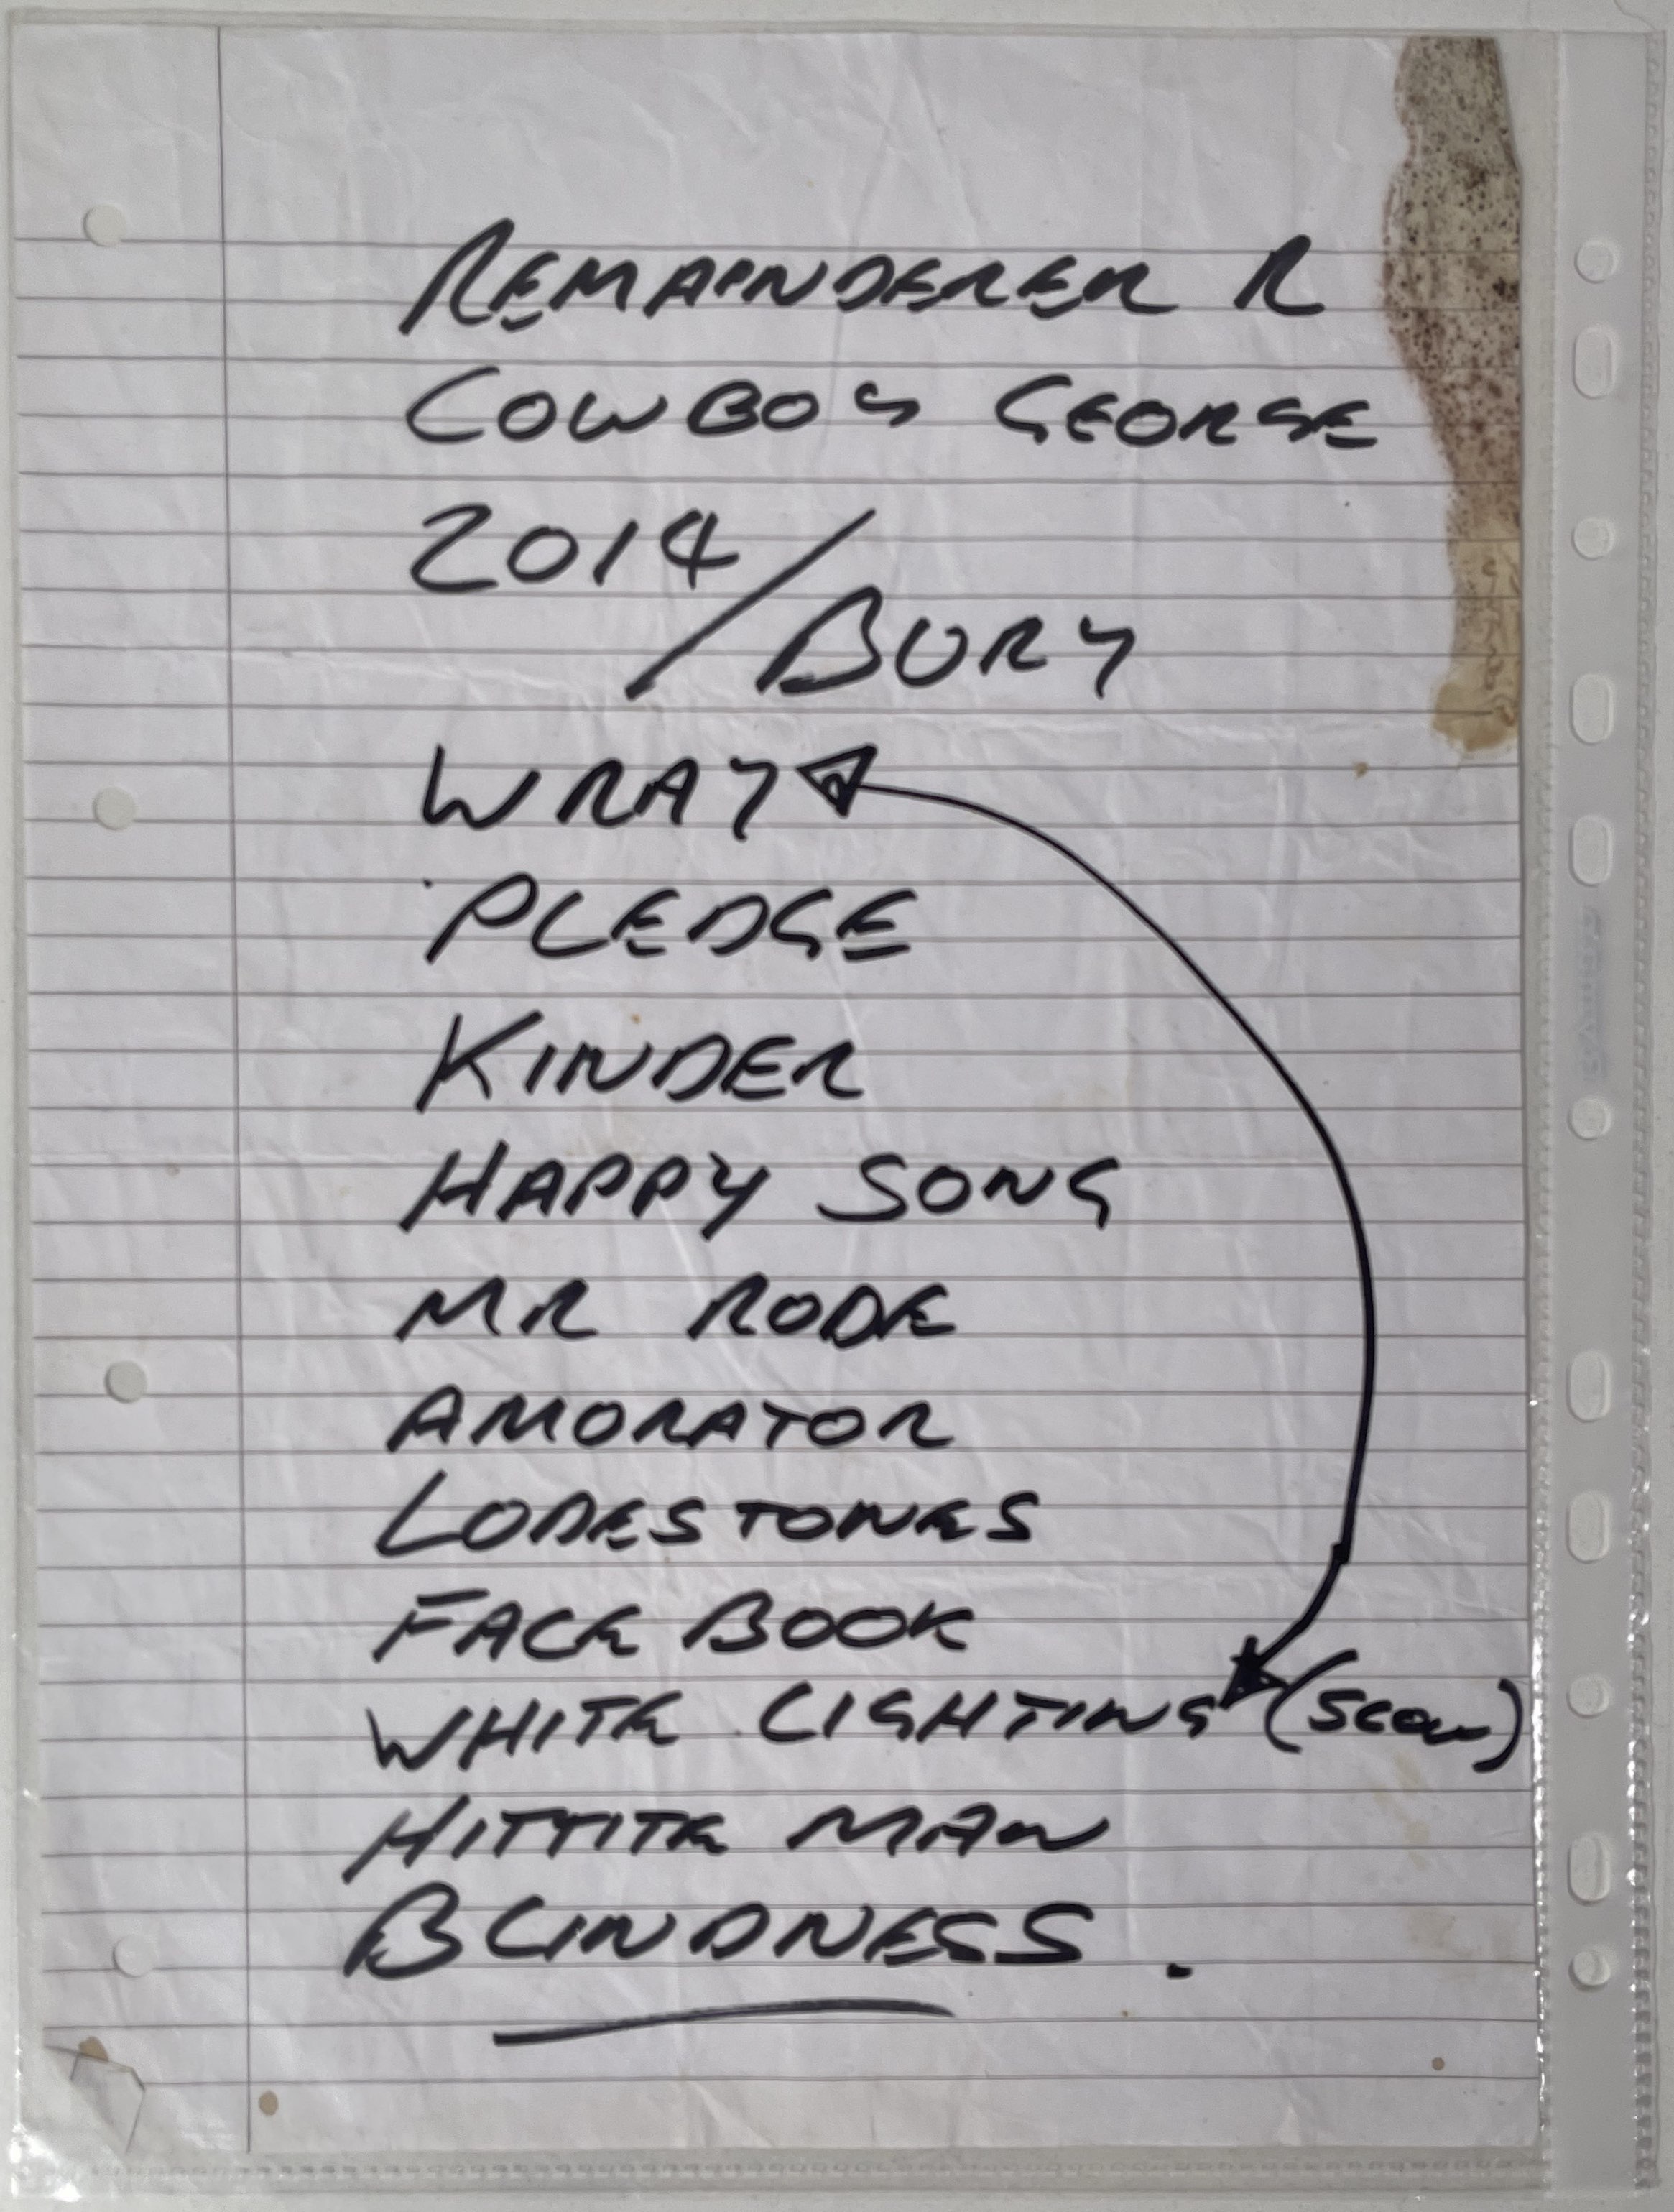 REMAINDERER R
COWBOY GEORGE
2014
/BURY
WRAY
PLEDGE
KINDER
HAPPY SONG
MR RODE
AMORATOR
LODESTONES
FACE BOOK
WHITE LIGHTING
HITTITE MAN
BLINDNESS.